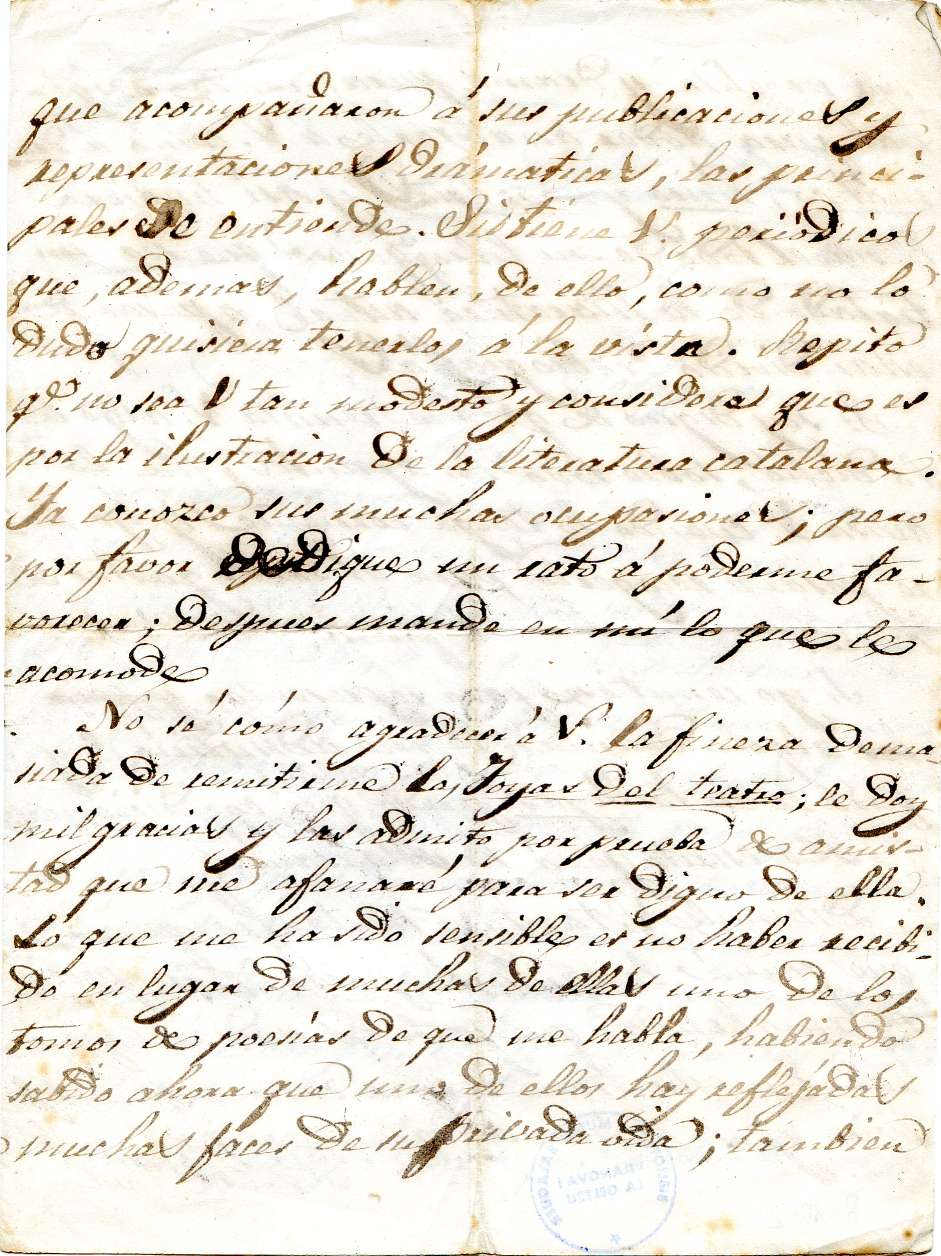 que acompañaron á sus publicaciones y
representaciones drámaticas, las princi-
pales se entiende. Si tiene V. periódicos
que, ademas, hablen, de ello, como no lo
dudo quisiera tenerlos á la vista. Repito
qe. no sea V tan modesto y considere que es
por la ilustracion de la literatura catalana.
Ya conozco sus muchas ocupasiones; pero
por favor dedique un rato á poderme fa-
vorecer; despues mande en mí lo que le
acomode
No sé cómo agradecer á V. la fineza dema-
siada de remitirme las Joyas del teatro; le doy
mil gracias y las admito por prueba de amis-
tad que me afanaré para ser digno de ella.
Lo que me ha sido sensible es no haber recibi-
do en lugar de muchas de ellas uno de los
tomos de poesías de que me habla, habiendo
sabido ahora que uno de ellos hay reflejadas
muchas faces de su privada vida; tambien